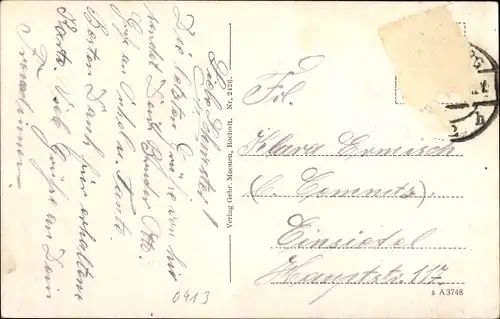 Liebe Schwester!
Die letzten Grüße von hier
sendet Dein Bruder Otto.
Grüße an Onkel u. Tante.
Besten Dank für erhaltene
Karte. Viele Grüße an Dein
Freundinnen
Verlag Gebr. Moenen, Bocholt. Nr. 2426.
Frl.
Klara Ermisch
(b. Chemnitz)
Einsiedel
Hauptstr. 117.
0413
s A 3748